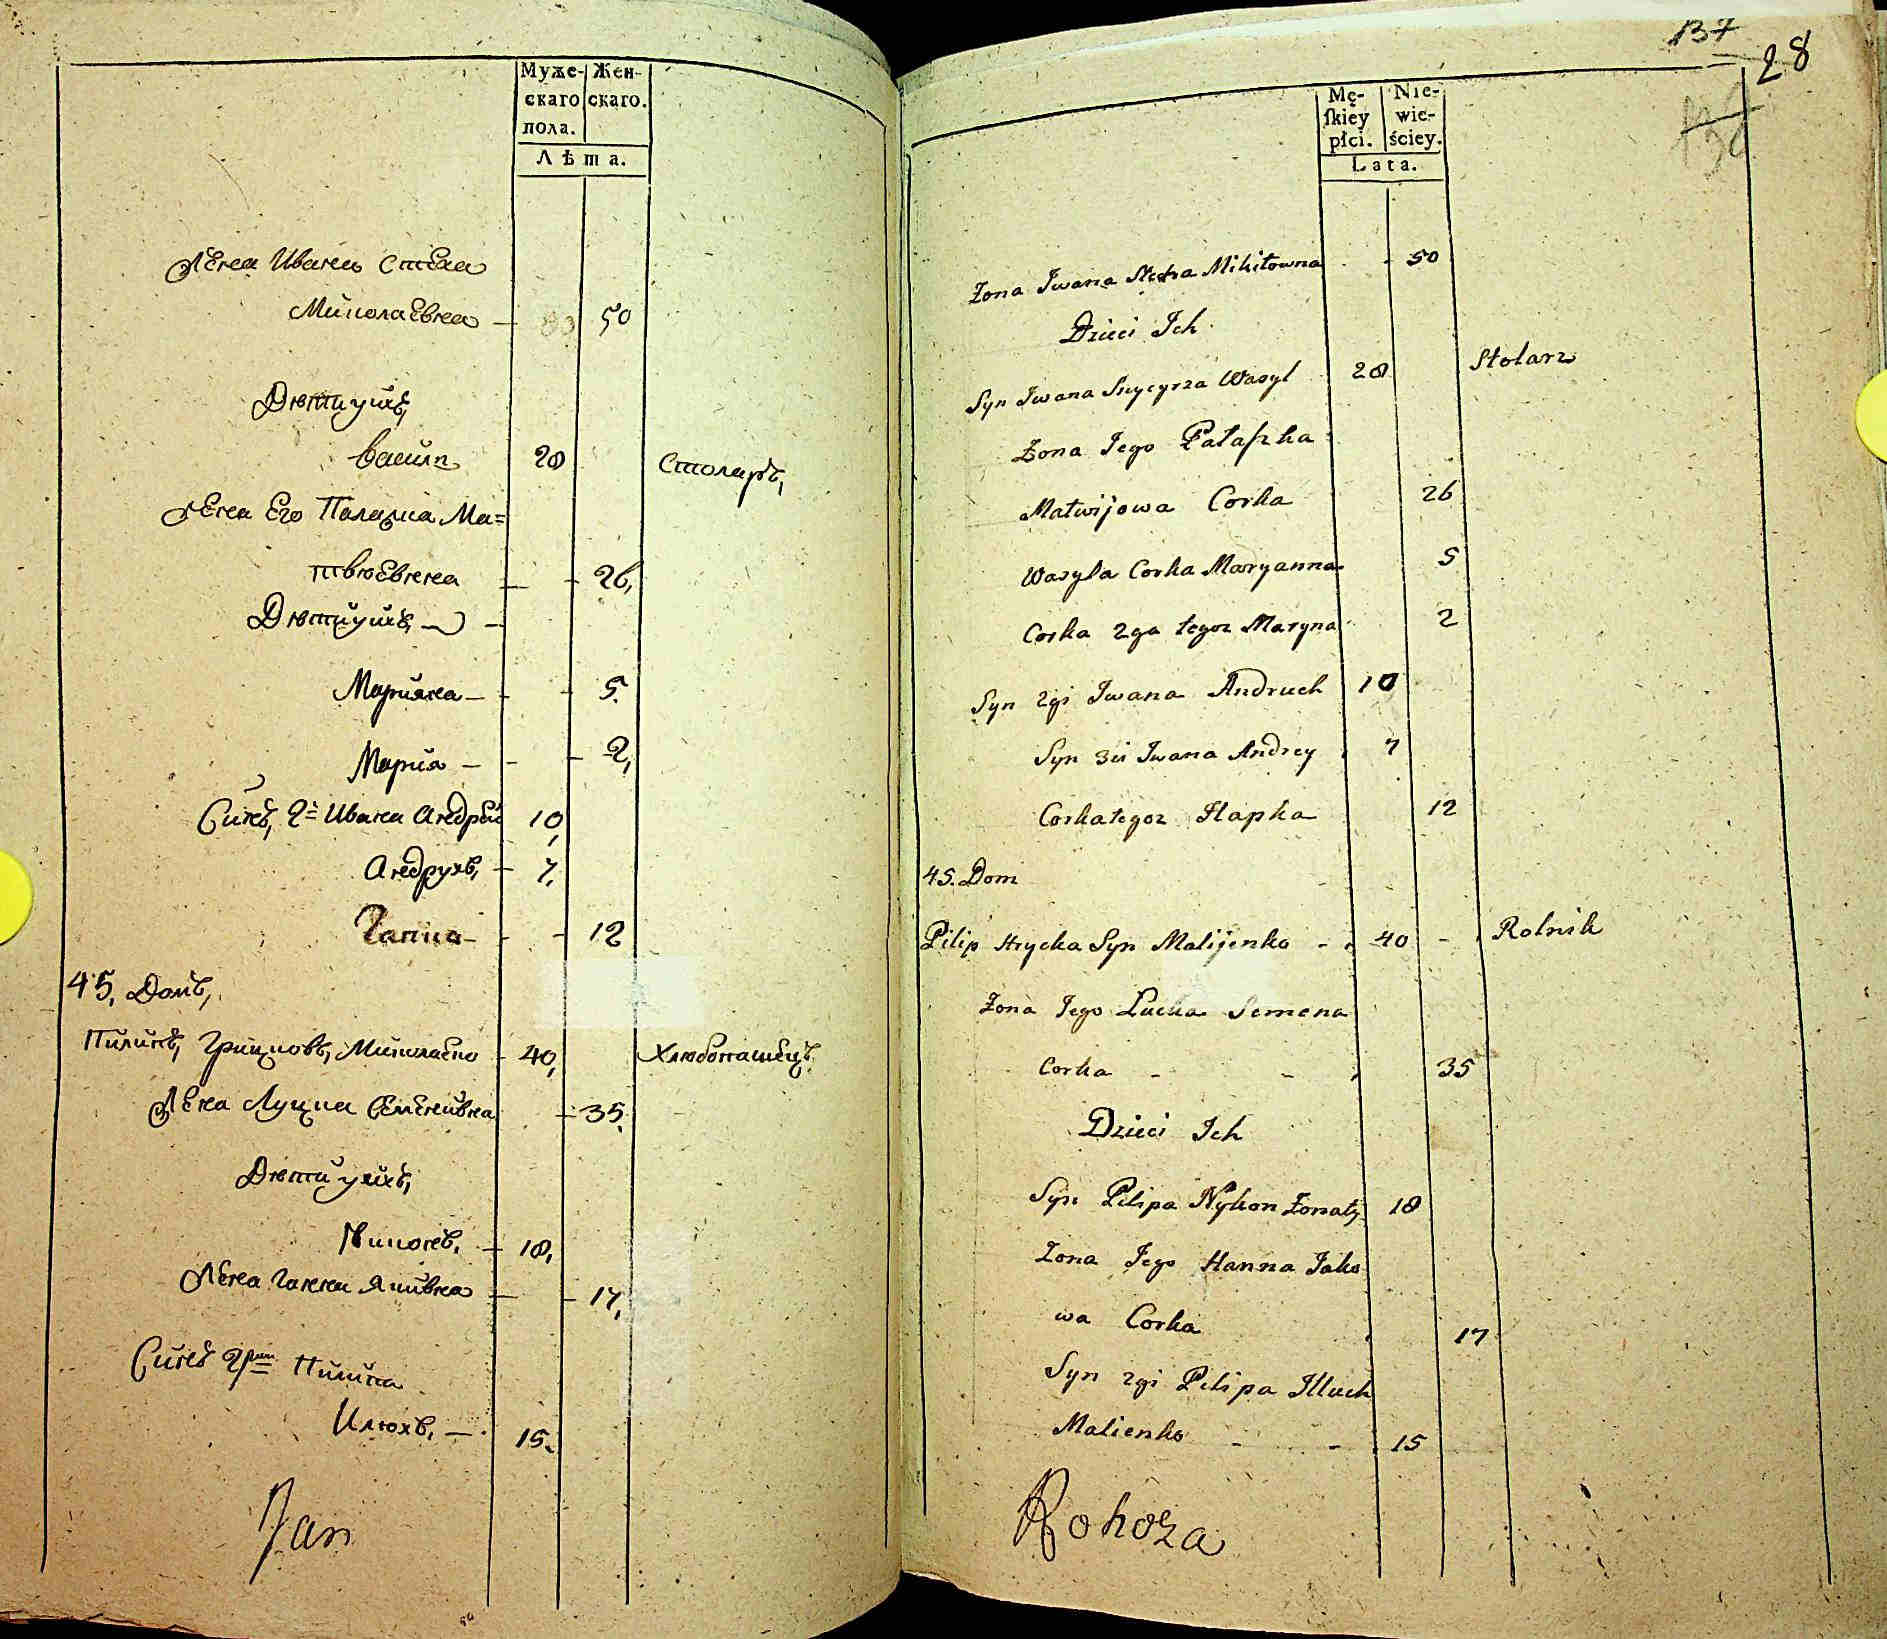 Муже-
скаго
пола.
Жен-
скаго.
Лѣта.
Жена Ивана Стеха
Миколаевна — 50
Дѣти ихъ,
Василь 28 Столяръ,
Жена Его Палажка Ма=
твѣевна — 26,
Дѣти ихъ, —
Марияна — 5.
Мария — 2,
Синъ, 2й Ивана Андрей 10,
Андрухъ, — 7,
Гапка — 12
45, Домъ,
Пилипъ, Грицковъ, 40, Хлѣбопашецъ.
Жена Луцка Семенивна 35.
Дѣти ихъ,
Никонъ, — 18,
Жена Ганна Якивна — 17,
Синъ 2й Пилипа
Илюхъ, — 15.
Jan
137
28
Mę-
skiey
płci.
Nie-
wie-
ściey.
Lata.
Żona Jwana Stecha Mikitowna 50
Dzieci Jch
Syn Jwana Snycyrza Wasyl 28 Stolarz
Żona Jego Pałaszka
Matwijowa Corka 26
Wasyla Corka Maryanna 5
Corka 2ga tegoz Maryna 2
Syn 2gi Jwana Andruch 10
Syn 3ci Jwana Andrey 7
Corka tegoz Hapka 12
45. Dom
Pilip Hrycka Syn Malijenko - 40 - Rolnik
Żona Jego Lucka Semena
Corka - - 35
Dzieci Jch
Syn Pilipa Nykon Żonaty 18
Żona Jego Hanna Jako
wa Corka 17
Syn 2gi Pilipa Jlluch
Malienko - - 15
Rohoza